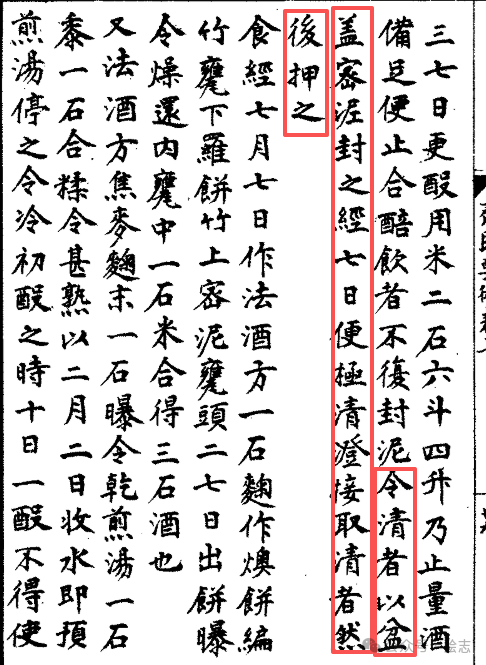 三七日更酘用米二石六斗四升乃止量酒
備足便止合醅飲者不復封泥令清者以盆
盖密泥封之經七日便極清澄接取清者然
後押之
食經七月七日作法酒方一石麴作燠餅編
竹甕下羅餅竹上密泥甕頭二七日出餅曝
令燥還内甕中一石米合得三石酒也
又法酒方焦麥麴末一石曝令乾煎湯一石
黍一石合糅令甚熟以二月二日收水即預
煎湯停之令冷初酘之時十日一酘不得使